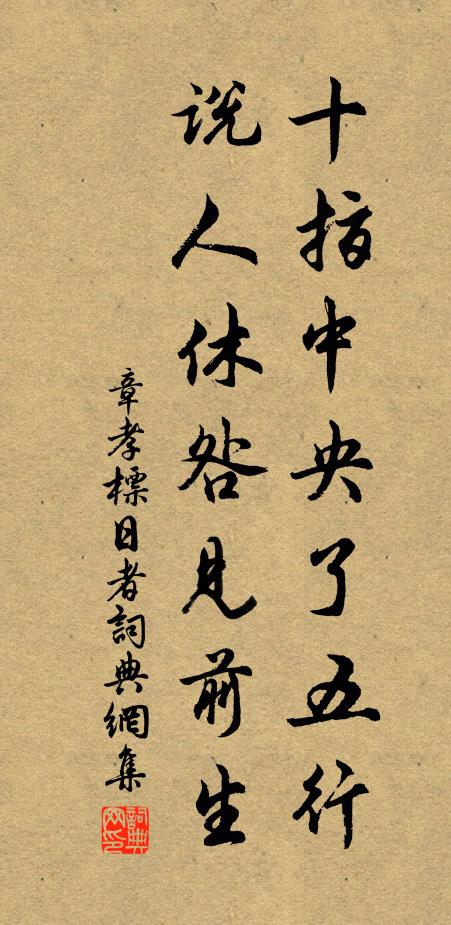 十指中央了五行
說人休咎見前生
章孝標日者詞典網集
詞典網印